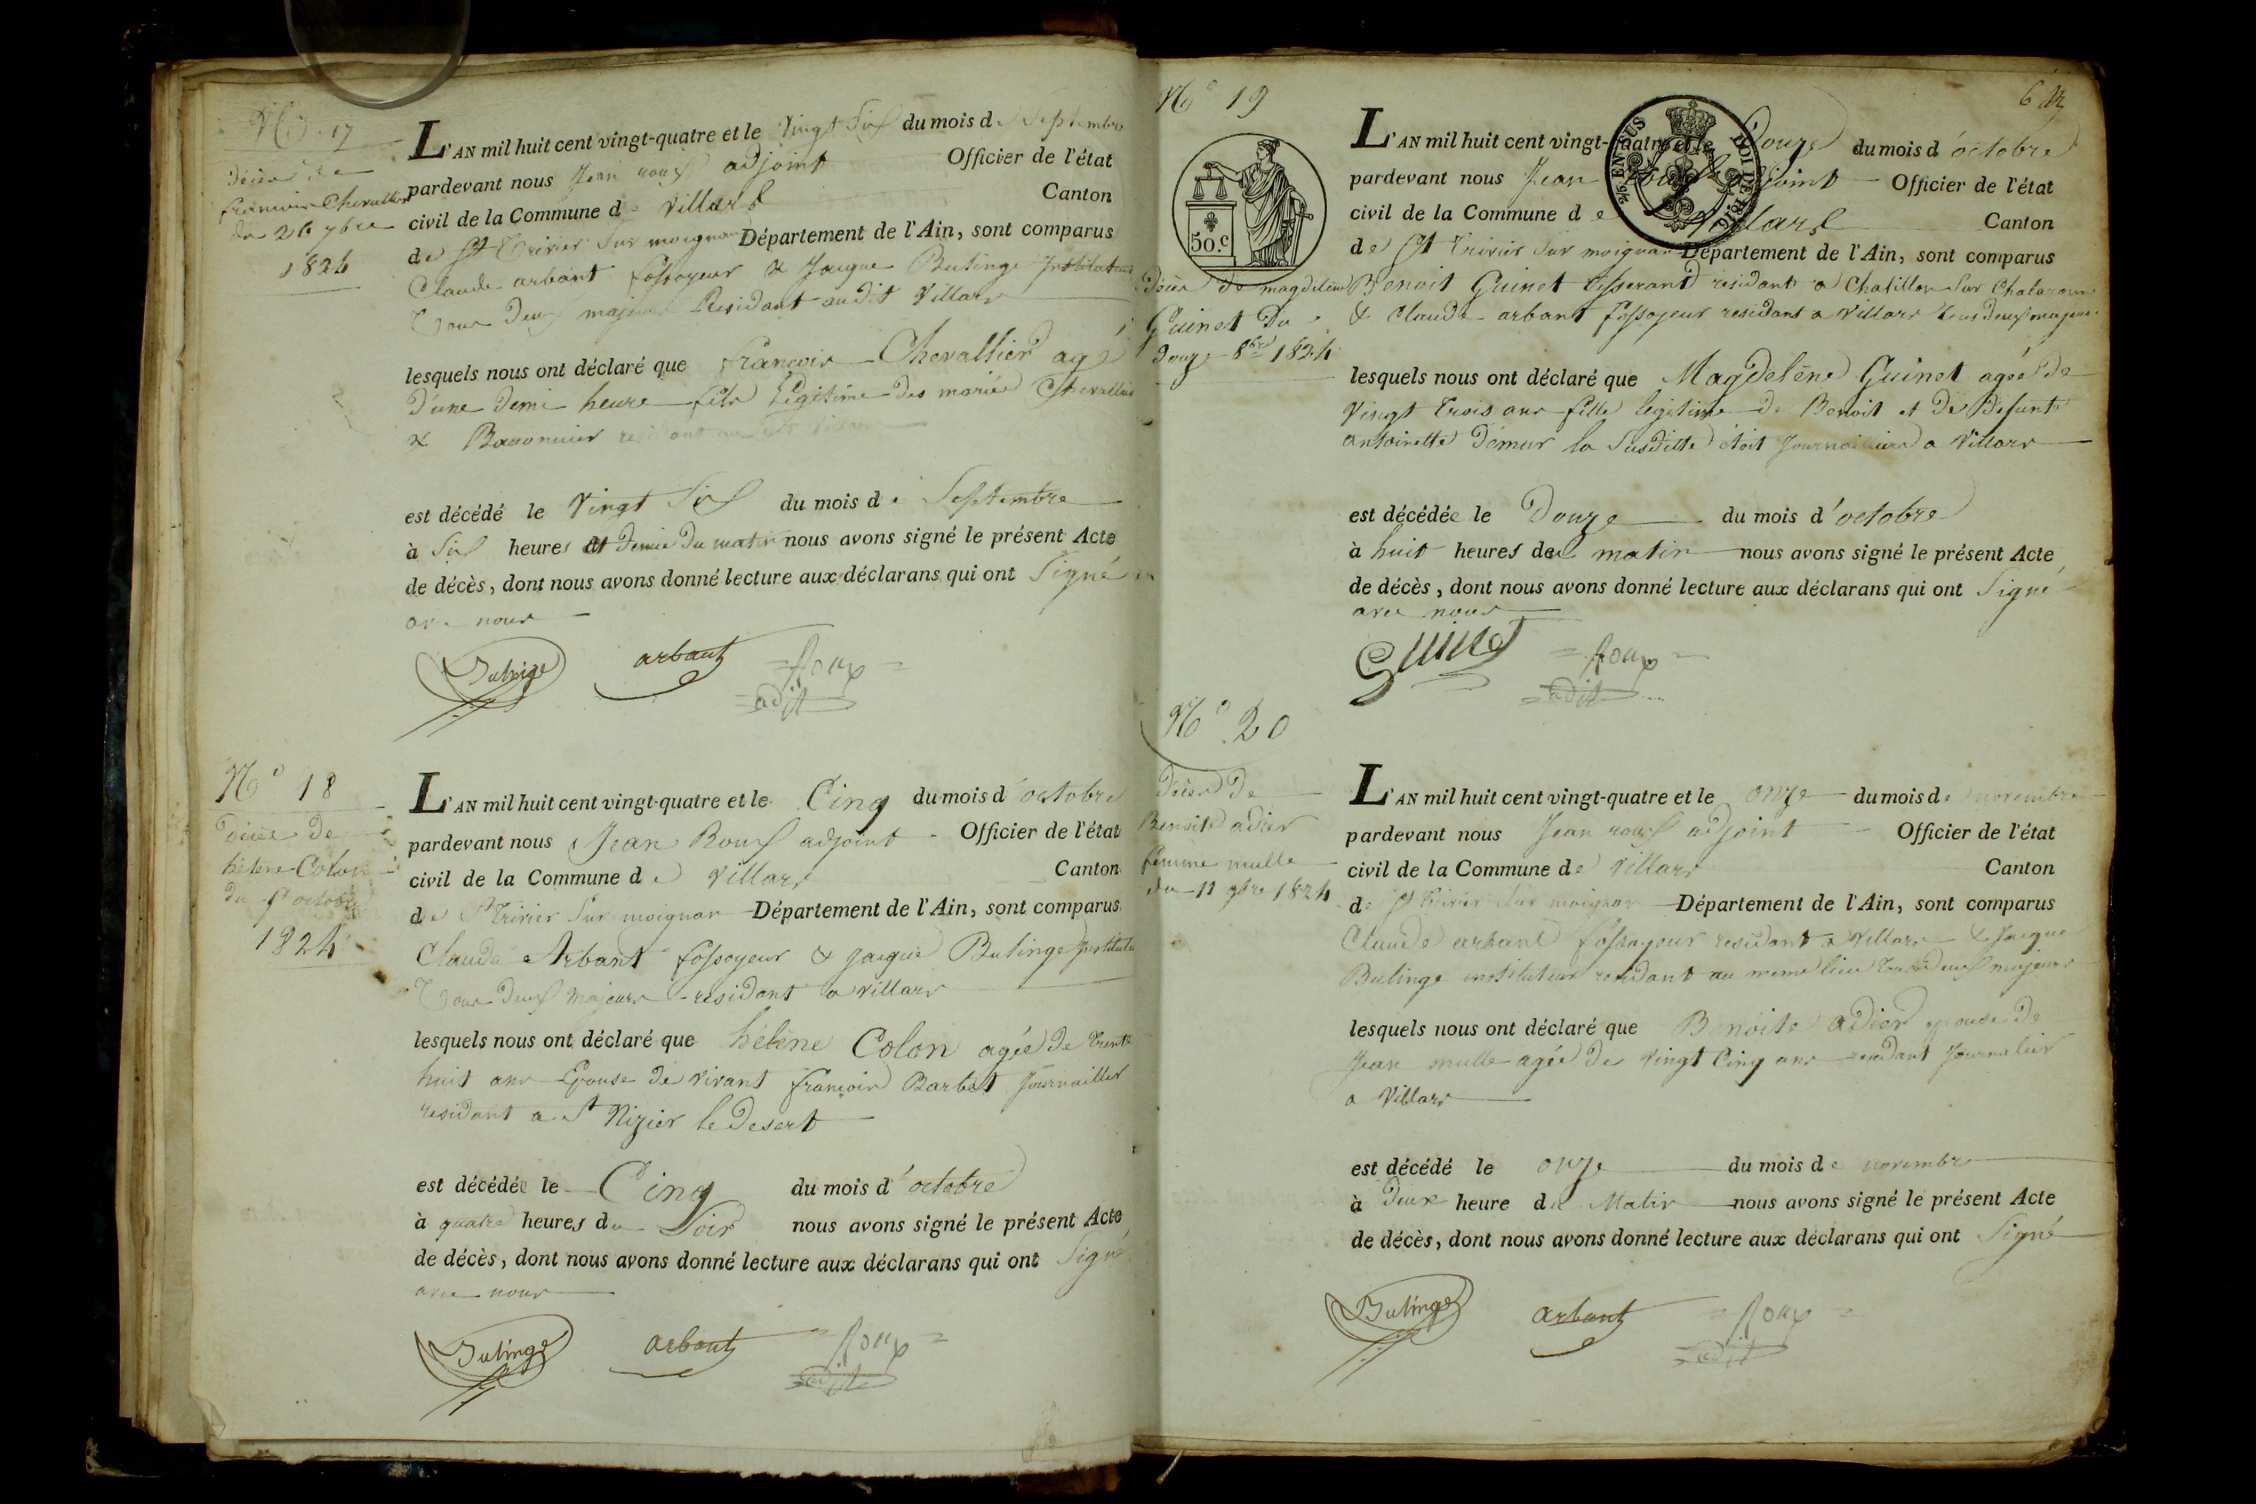 No 17
Décès de
francois Chevallier
du 26 7bre
1824
L'AN mil huit cent vingt-quatre et le Vingt Six du mois de Septembre
pardevant nous Jean roux adjoint Officier de l'état
civil de la Commune de Villars Canton
de St Trivier Sur moignan Département de l'Ain, sont comparus
Claude arbant fossoyeur & Jacque Bulinge Instituteur
Tous Deux majeurs Residant audit Villars
lesquels nous ont déclaré que francois Chevallier agé
D'une Demi heure fils Légitime Des mariés Chevallier
&
est décédé le Vingt Six du mois de Septembre
à Six heures et Demie Du matin nous avons signé le présent Acte
de décès, dont nous avons donné lecture aux déclarans qui ont Signé
avec nous
Bulinge arbant Roux
adjt
No 18
Décès De
hélène Colon
Du 5 octobre
1824
L'AN mil huit cent vingt-quatre et le Cinq du mois d'octobre
pardevant nous Jean Roux adjoint Officier de l'état
civil de la Commune de Villars Canton
de St Trivier Sur moignan Département de l'Ain, sont comparus
Claude Arbant fossoyeur & Jacque Bulinge Instituteur
Tous Deux Majeurs residant a Villars
lesquels nous ont déclaré que hélène Colon agée De trente
huit ans Epouse De vivant françois Barbet Journallier
residant a St Nizier le Desert
est décédée le Cinq du mois d'octobre
à quatre heures du Soir nous avons signé le présent Acte
de décès, dont nous avons donné lecture aux déclarans qui ont Signé
avec nous
Bulinge arbant Roux
adjt
No 19
6
50.c
Décès de magdelène
Guinet Du
Douze 8bre 1824
L'AN mil huit cent vingt-quatre et le Douze du mois d'octobre
pardevant nous Jean Roux adjoint Officier de l'état
civil de la Commune de Villars Canton
de St Trivier Sur moignan Département de l'Ain, sont comparus
Benoit Guinet tisserand residant a Chatillon Sur Chalaronne
& Claude arbant fossoyeur residant a Villars tous deux majeurs
lesquels nous ont déclaré que Magdelène Guinet agée de
Vingt Trois ans fille légitime de Benoit et De Defunte
antoinette Démur la Susditte étoit Journallière a Villars
est décédée le Douze du mois d'octobre
à huit heures du matin nous avons signé le présent Acte
de décès, dont nous avons donné lecture aux déclarans qui ont Signé
avec nous
Guinet Roux
adjt
No 20
Décès De
Benoite adier
femme mulle
du 11 9bre 1824
L'AN mil huit cent vingt-quatre et le onze du mois de novembre
pardevant nous Jean roux adjoint Officier de l'état
civil de la Commune de Villars Canton
de St Trivier Sur moignan Département de l'Ain, sont comparus
Claude arbant fossoyeur residant a Villars & Jacque
Bulinge instituteur residant au meme lieu tous deux majeurs
lesquels nous ont déclaré que Benoite adier epouse de
Jean mulle agée De Vingt Cinq ans residant Journalier
a Villars
est décédé le onze du mois de novembre
à Deux heure du Matin nous avons signé le présent Acte
de décès, dont nous avons donné lecture aux déclarans qui ont Signé
Bulinge arbant Roux
adjt